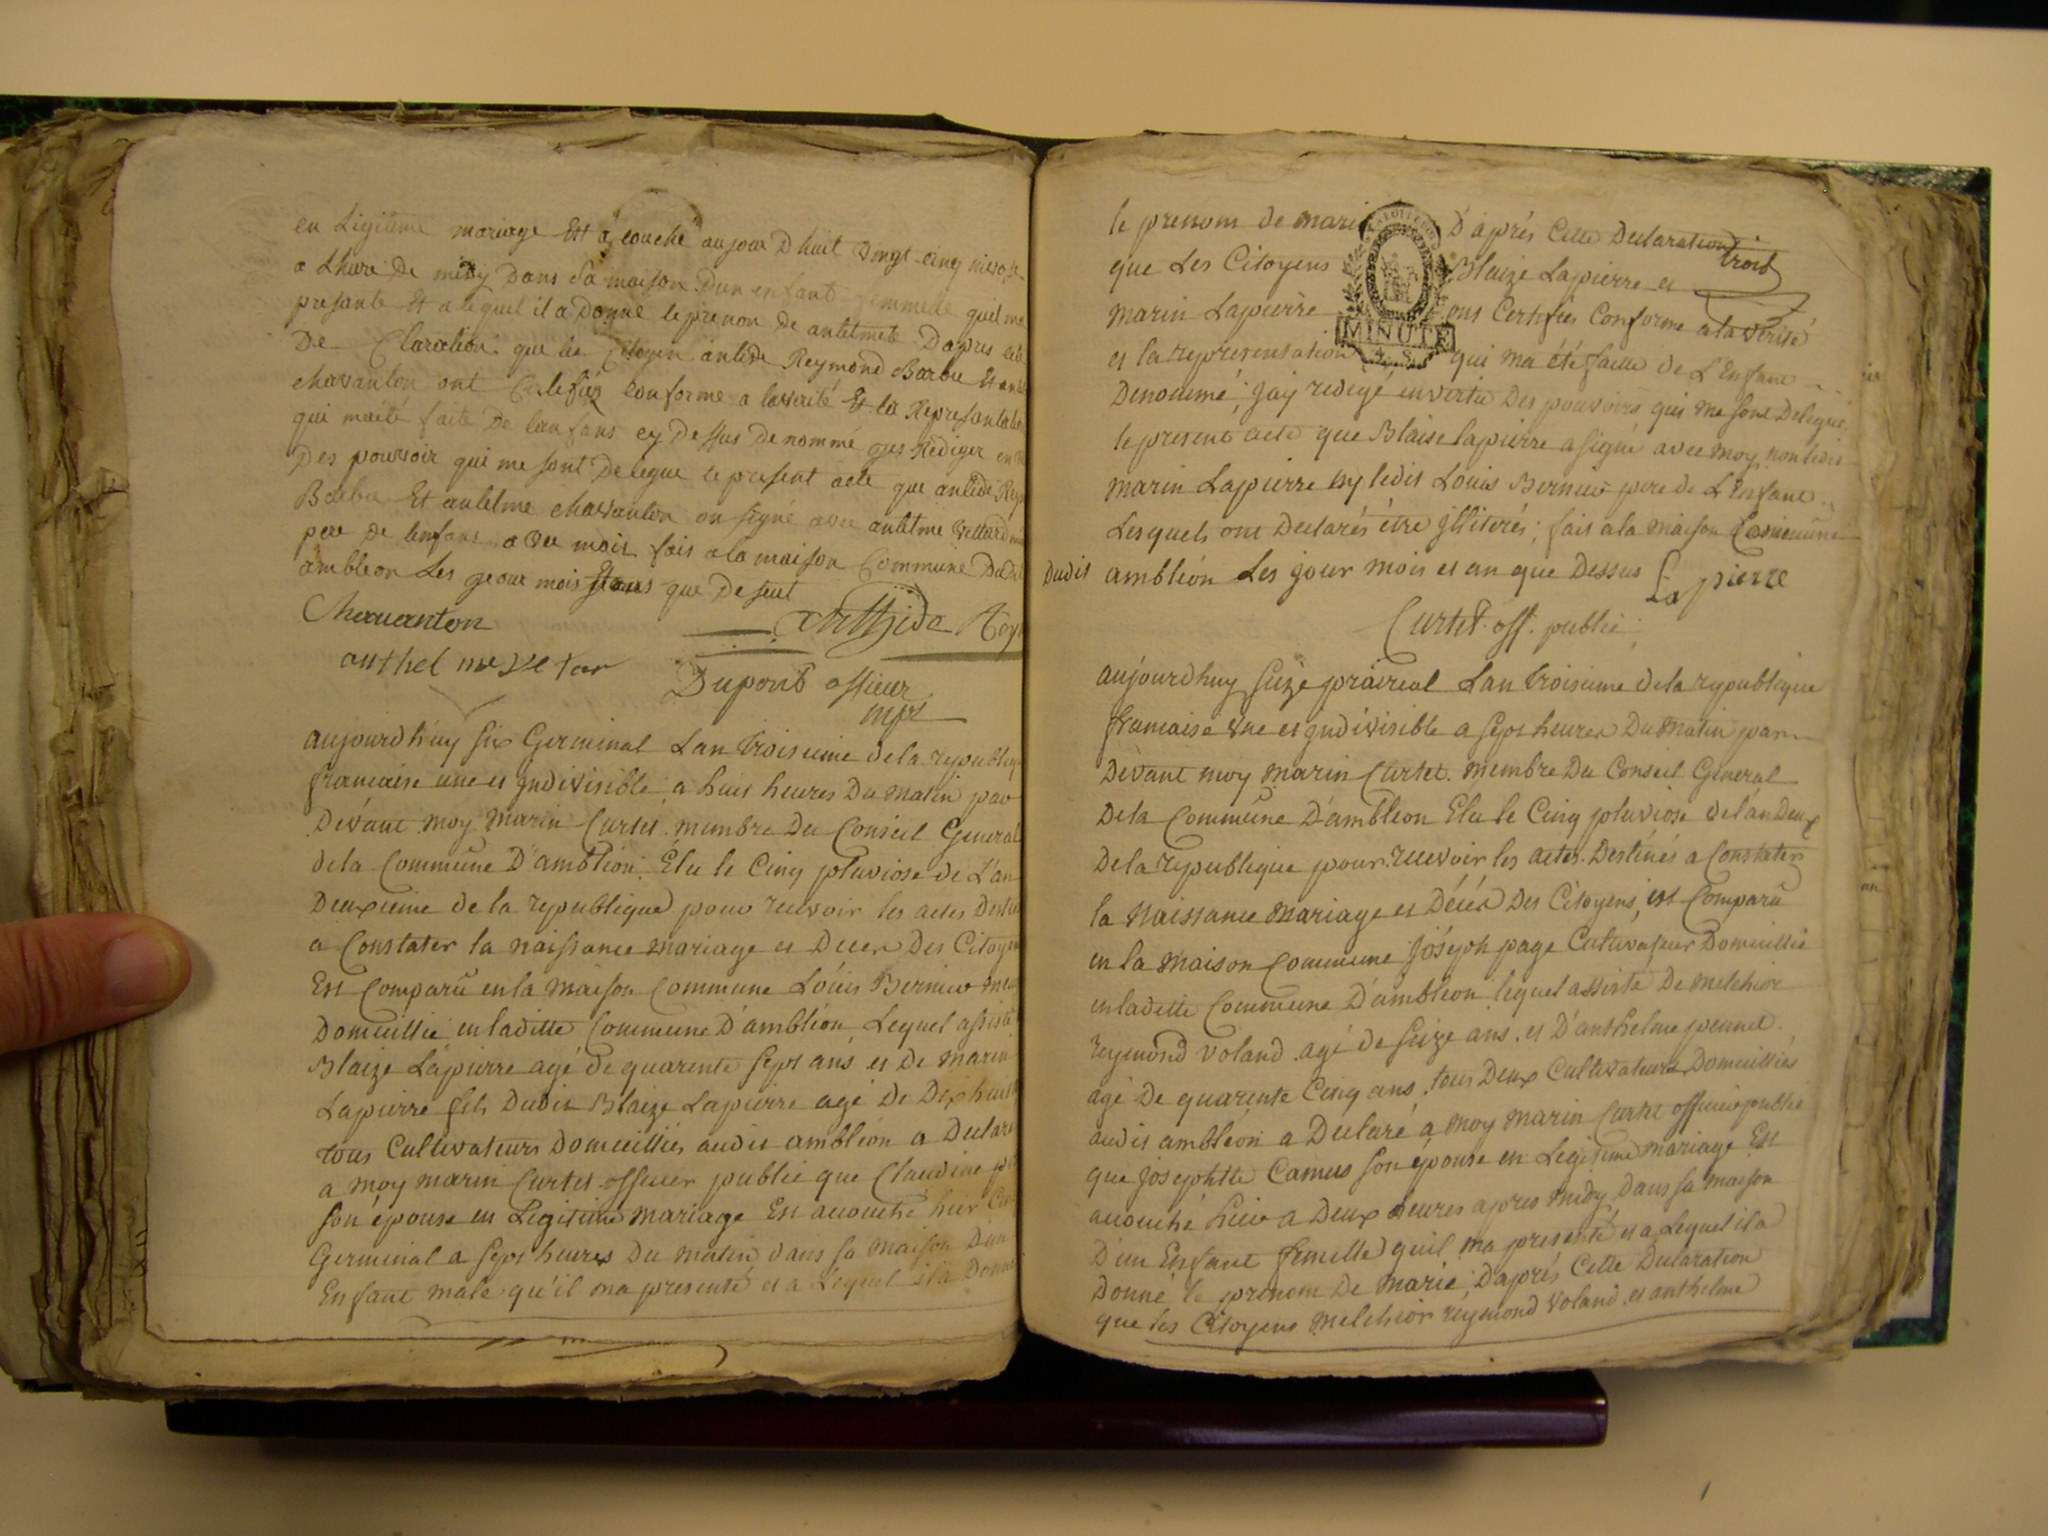 en Ligitime mariage Est a couché aujour Dhuit vingt-cinq nivose
a Lhure De midy Dans Sa maison Dun enfant femmele quil me
presante Et a lequel il a Donné le prenon De antelmete Dapres cete
De Claration que les Citoyen antide Reymond Barbe Et antel
chavanton ont Certefiez conforme a laverité Et la Represantation
qui maité faite De lanfans cy Dessus De nommé Rediger en
Des pouvoir qui me sont Delegue le present acte que antide Rey
Barbe Et antelme chavanton on signé avec antelme vettard
pere De lenfans avec mois fais a la maison Commune Dudi
ambleon Les jeour mois Et ans que Desus
Chavanton
anthide Rey
anthel me ve tar
Dupont officier
aujourdhuy six Germinal Lan troisieme de la republiq
francaise une et jndivisible a huit heures Du matin par
Devant moy marin Curtet membre Du Conseil General
de la Commune D'ambléon Elu le Cinq pluviose de L'an
Deuxieme de la republique pour recevoir les actes Desti
a Constater la naissance mariage et Deces Des Citoyens
Est Comparu en la maison Commune Louis Bernier
Domicillié en laditte Commune D'ambléon Lequel assisté
Blaize Lapierre agé de quarente sept ans et de marin
Lapierre fils Dudit Blaize Lapierre agé De Dix huit
tous Cultivateurs Domicilliés audit ambléon a Declaré
a moy marin Curtet officier public que Claudine
son épouse en Legitime mariage Est acouché hier Cin
Germinal a sept heures Du matin dans sa maison D'un
Enfant male qu'il ma presenté et a Lequel il a Donné
le prenom de mari D'aprés Cette Declaration
trois
que Les Citoyens Blaize Lapierre et
marin Lapierre ont Certifiés Conforme a la verité
MINUTE
et la representation qui ma été faitte de L'Enfant
Denommé, jay redigé en vertu Des pouvoirs qui me sont Delegués
le present acte que Blaise lapierre a signé avec moy non ledit
marin Lapierre ny ledit Louis Bernier pere de L'Enfant
Lesquels ont Declarés être jlliterés, fait a la maison Commune
Dudit ambléon Les jour mois et an que Dessus Lapierre
Curtet off. public
aujourdhuy seize prairéal Lan troisieme de la republique
francaise une et jndivisible a sept heures Du matin par
Devant moy marin Curtet membre Du Conseil General
De la Commune D'ambleon Elu le Cinq pluviose de lan Deux
De la republique pour recevoir les actes Destinés a Constater
la naissance mariage et Décés Des Citoyens, est Comparu
en la maison commune joséph page Cultivateur Domicillié
en laditte Commune D'ambleon lequel assisté De melchior
reymond voland agé de seize ans et D'anthelme
agé De quarente Cinq ans, tous Deux Cultivateurs Domicilliés
audit ambléon a Declaré a moy marin Curtet officier public
que josephtte Camus son épouse en Legitime mariage Est
acouché hier a Deux heures apres midy Dans sa maison
D'un Enfant femelle quil ma presenté et a Lequel il a
Donné le prenom De marie, D'aprés Cette Declaration
que les Citoyens melchior reymond voland et anthelme